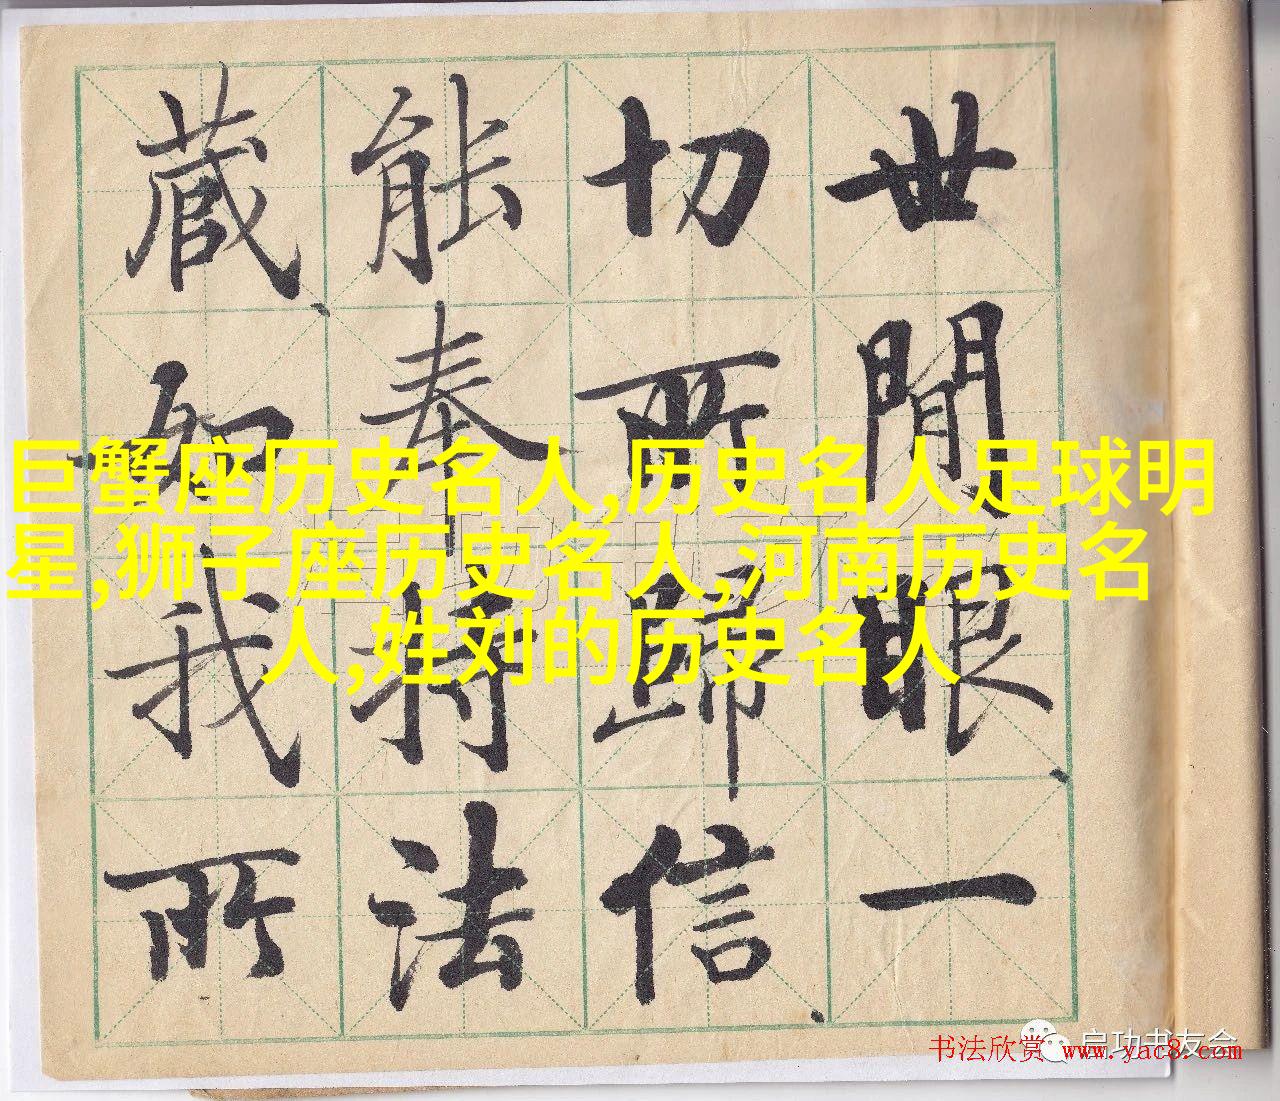 世間眼一
切所歸信
能奉持法
藏如我所
巨蟹座历史名人,历史名人足球明
星,狮子座历史名人,河南历史名
人,姓刘的历史名人
启功书友会
书法欣赏 www.yac8.com